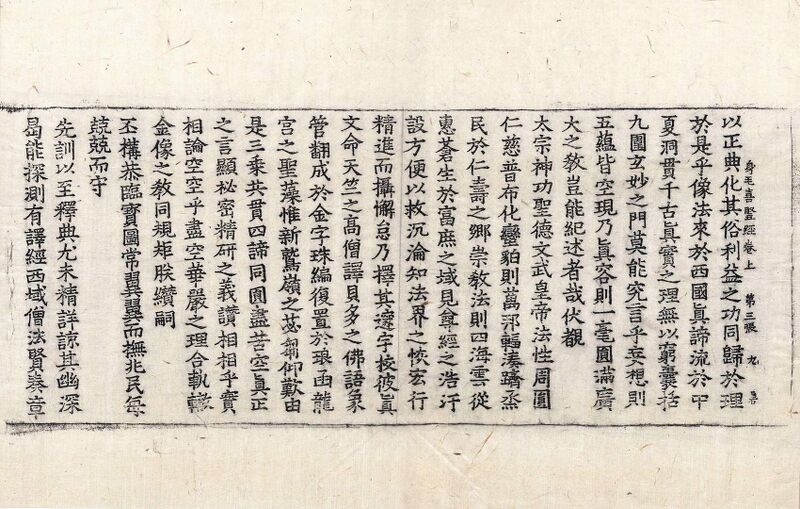 以正典化其俗利益之功同歸於理
身毛喜竪經卷上 第三張 九 喜
於是乎像法來於西國眞諦流於中
夏洞貫千古眞實之理無以窮囊括
九圍玄妙之門莫能究言乎妄想則
五蘊皆空現乃眞容則一毫圓滿廣
大之教豈能紀述者哉伏覩
太宗神功聖德文武皇帝法性周圓
仁慈普布化蠻貊則萬邦輻湊躋烝
民於仁壽之鄉崇教法則四海雲從
惠蒼生於富庶之域見尊經之浩汗
設方便以救沉淪知法界之恢宏行
精進而攝懈怠乃擇其邃宇校彼眞
文命天竺之高僧譯貝多之佛語象
管翻成於金字珠編復置於琅函龍
宮之聖藻惟新鷲嶺之苾蒭仰歎由
是三乘共貫四諦同圓盡苦空眞正
之言顯祕密精研之義讚相相乎實
相論空空乎盡空華嚴之理合軌轍
金像之教同規矩朕纘嗣
丕構恭臨寶圖常翼翼而撫兆民每
兢兢而守
先訓以至釋典尤未精詳諒其幽深
曷能探測有譯經西域僧法賢奏章